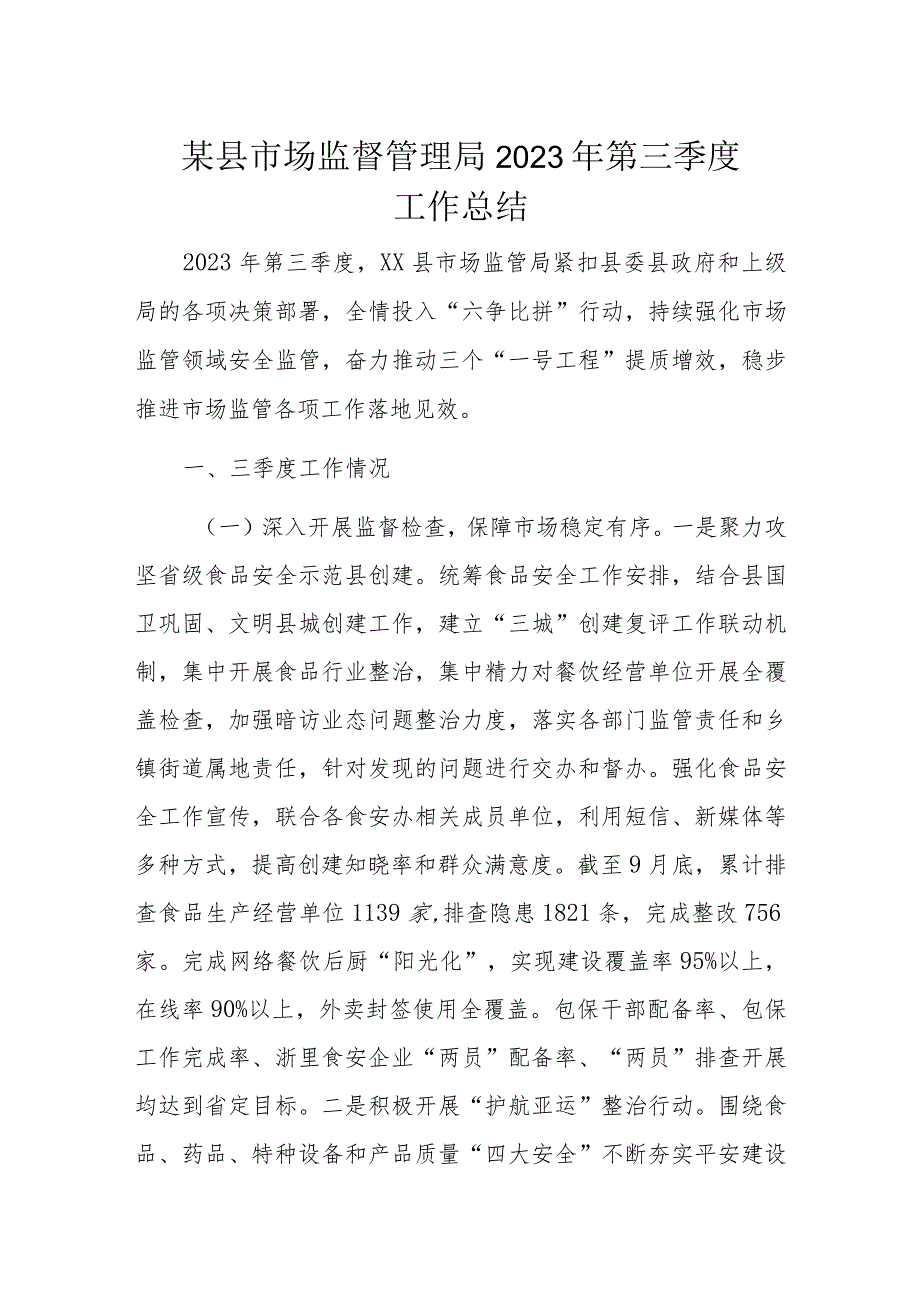 某县市场监督管理局2023年第三季度
工作总结
2023年第三季度，XX县市场监管局紧扣县委县政府和上级
局的各项决策部署，全情投入“六争比拼”行动，持续强化市场
监管领域安全监管，奋力推动三个“一号工程”提质增效，稳步
推进市场监管各项工作落地见效。
一、三季度工作情况
（一）深入开展监督检查，保障市场稳定有序。一是聚力攻
坚省级食品安全示范县创建。统筹食品安全工作安排，结合县国
卫巩固、文明县城创建工作，建立“三城”创建复评工作联动机
制，集中开展食品行业整治，集中精力对餐饮经营单位开展全覆
盖检查，加强暗访业态问题整治力度，落实各部门监管责任和乡
镇街道属地责任，针对发现的问题进行交办和督办。强化食品安
全工作宣传，联合各食安办相关成员单位，利用短信、新媒体等
多种方式，提高创建知晓率和群众满意度。截至9月底，累计排
查食品生产经营单位1139家,排查隐患1821条，完成整改756
家。完成网络餐饮后厨“阳光化”，实现建设覆盖率95%以上，
在线率90%以上，外卖封签使用全覆盖。包保干部配备率、包保
工作完成率、浙里食安企业“两员”配备率、“两员”排查开展
均达到省定目标。二是积极开展“护航亚运”整治行动。围绕食
品、药品、特种设备和产品质量“四大安全”不断夯实平安建设